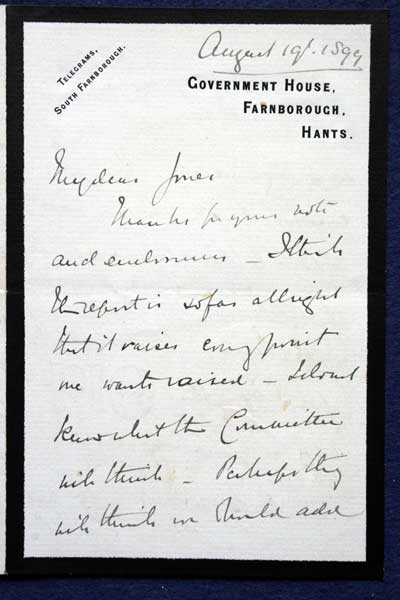 August 19th. 1899
TELEGRAMS,
SOUTH FARNBOROUGH.
GOVERNMENT HOUSE,
FARNBOROUGH,
HANTS.
My dear Jones
Thanks for your note
and enclosures – I think
the report is so far all right
that it raises every point
one wants raised – I do not
know what the Committee
will think – Perhaps they
will think we should add